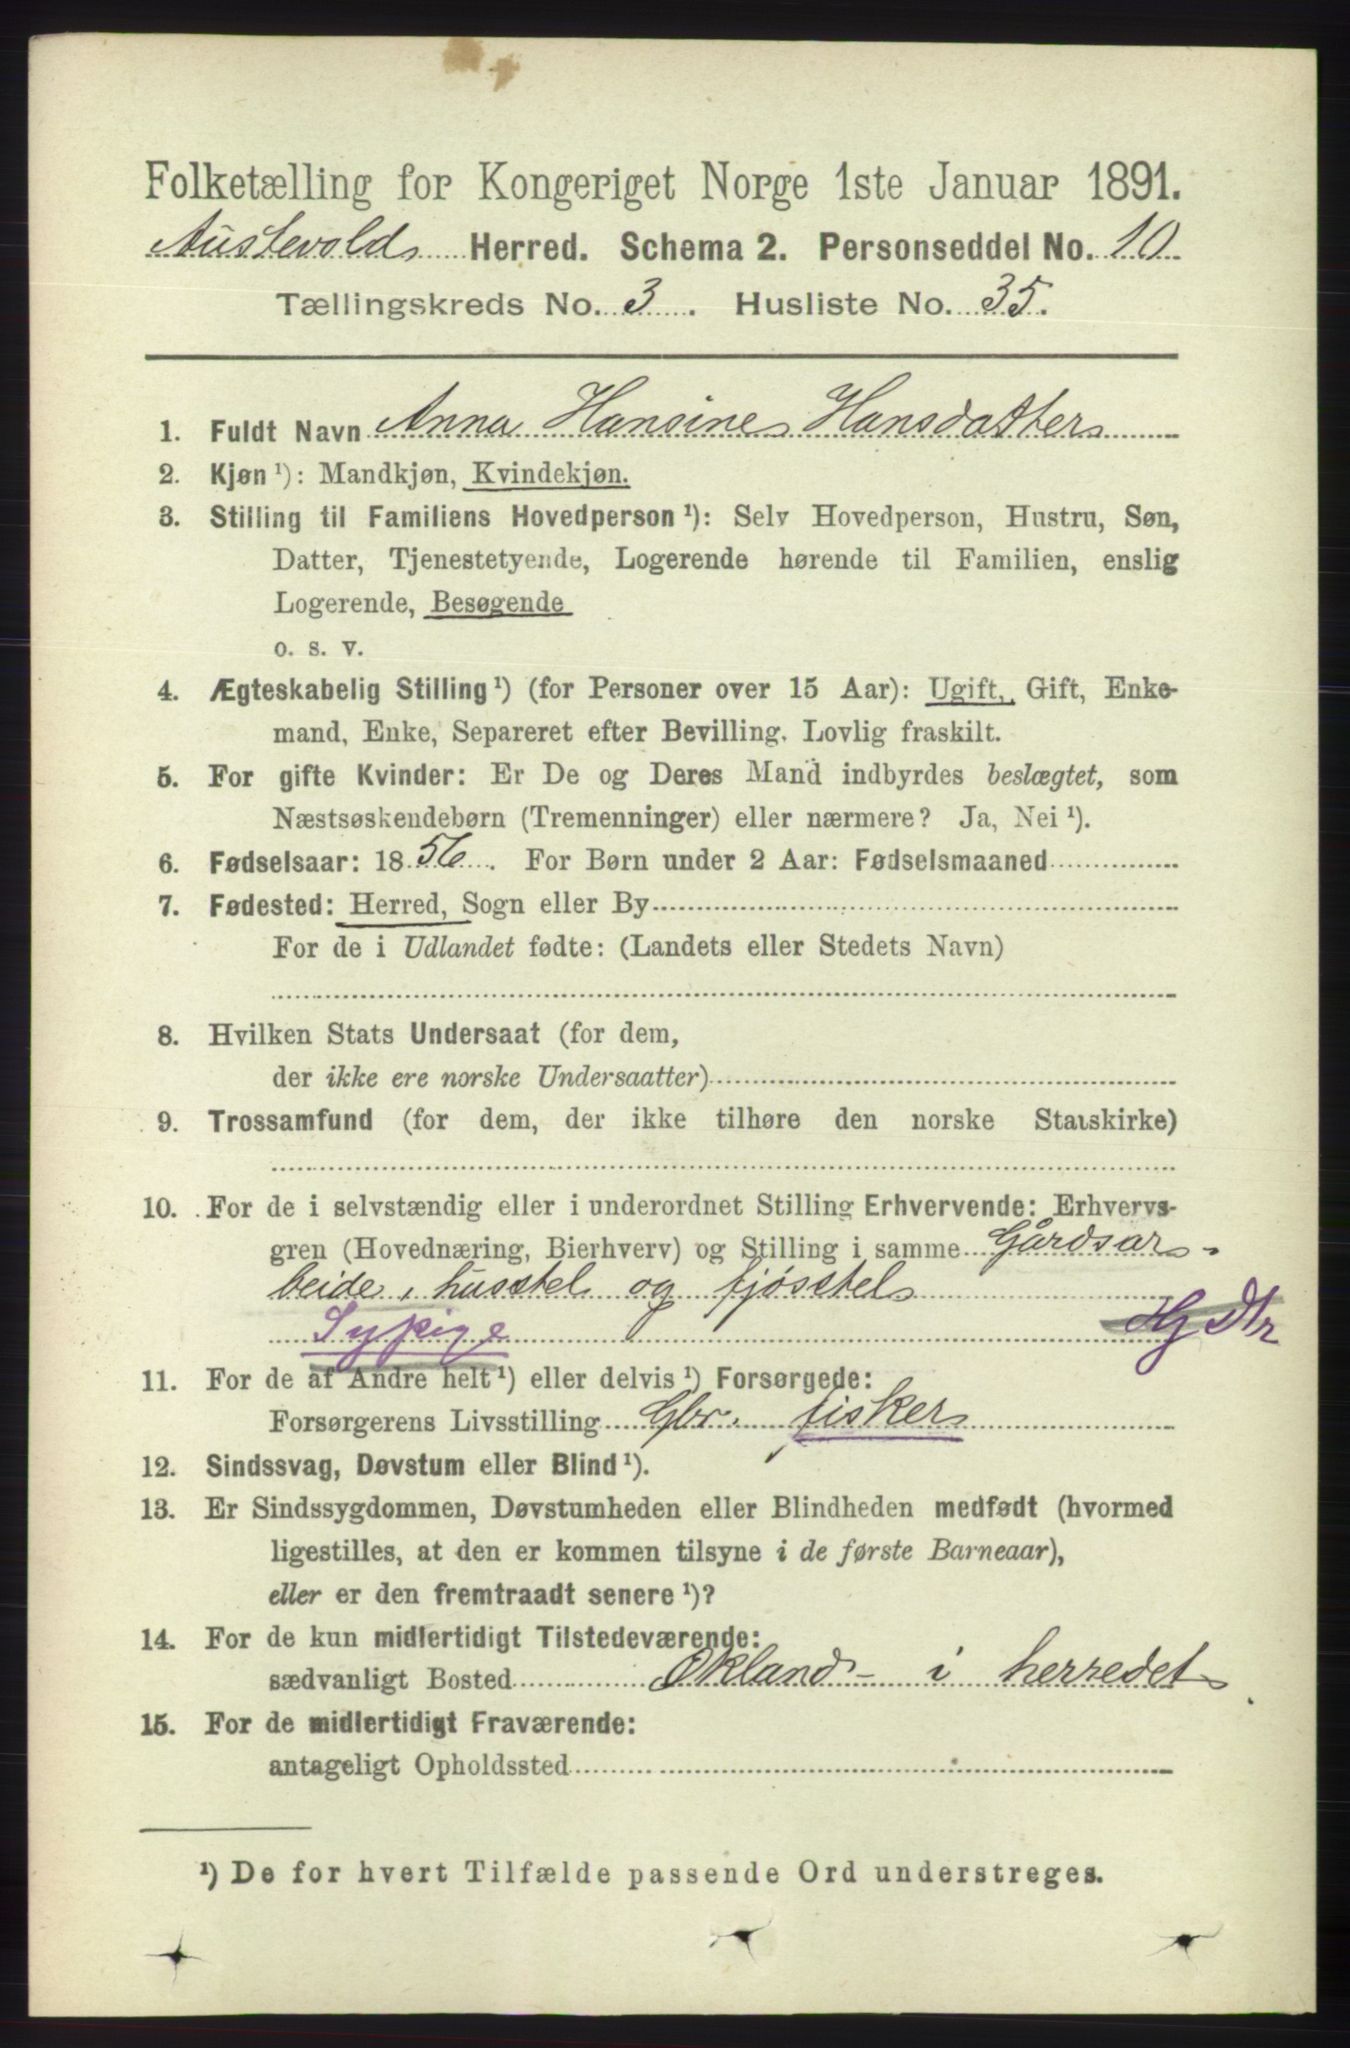 Folketælling for Kongeriget Norge 1ste Januar 1891.
Austevold Herred. Schema 2. Personseddel No. 10
Tællingskreds No. 3. Husliste No. 35.
1. Fuldt Navn Anna Hansine Hansdatter
2. Kjøn ¹): Mandkjøn, Kvindekjøn.
3. Stilling til Familiens Hovedperson ¹): Selv Hovedperson, Hustru, Søn,
Datter, Tjenestetyende, Logerende hørende til Familien, enslig
Logerende, Besøgende
o. s. v.
4. Ægteskabelig Stilling ¹) (for Personer over 15 Aar): Ugift, Gift, Enke-
mand, Enke, Separeret efter Bevilling. Lovlig fraskilt.
5. For gifte Kvinder: Er De og Deres Mand indbyrdes beslægtet, som
Næstsøskendebørn (Tremenninger) eller nærmere? Ja, Nei ¹).
6. Fødselsaar: 1856. For Børn under 2 Aar: Fødselsmaaned
7. Fødested: Herred, Sogn eller By
For de i Udlandet fødte: (Landets eller Stedets Navn)
8. Hvilken Stats Undersaat (for dem,
der ikke ere norske Undersaatter)
9. Trossamfund (for dem, der ikke tilhøre den norske Statskirke)
10. For de i selvstændig eller i underordnet Stilling Erhvervende: Erhvervs-
gren (Hovednæring, Bierhverv) og Stilling i samme Gårdsar-
beide, husstel og fjøsstel
Sypige Hg Dtr
11. For de af Andre helt ¹) eller delvis ¹) Forsørgede:
Forsørgerens Livsstilling Gbr. fisker
12. Sindssvag, Døvstum eller Blind ¹).
13. Er Sindssygdommen, Døvstumheden eller Blindheden medfødt (hvormed
ligestilles, at den er kommen tilsyne i de første Barneaar),
eller er den fremtraadt senere ¹)?
14. For de kun midlertidigt Tilstedeværende:
sædvanligt Bosted Økland - i herredet
15. For de midlertidigt Fraværende:
antageligt Opholdssted
¹) De for hvert Tilfælde passende Ord understreges.